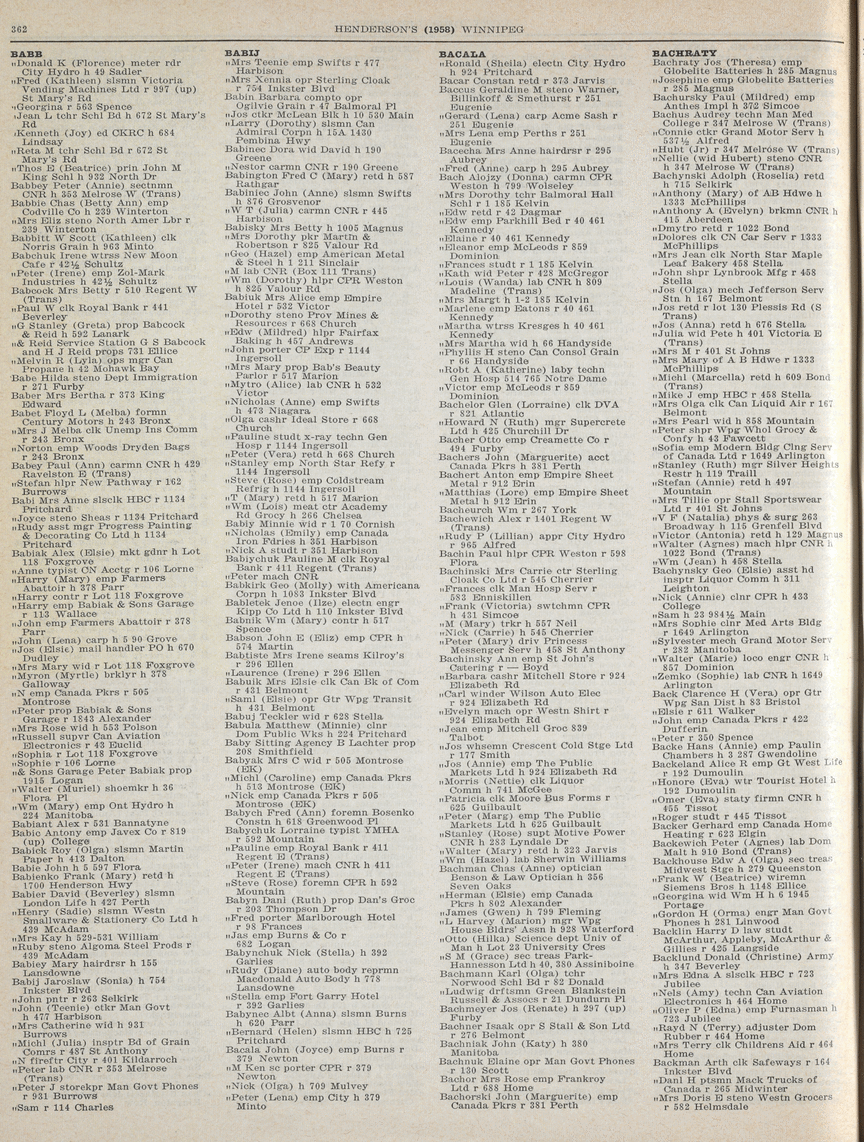 362
HENDERSON'S (1958) WINNIPEG
BABB
„Donald K (Florence) meter rdr
City Hydro h 49 Sadler
„Fred (Kathleen) slsmn Victoria
Vending Machines Ltd r 997 (up)
St Mary's Rd
„Georgina r 563 Spence
„Jean L tchr Schl Bd h 672 St Mary's
Rd
„Kenneth (Joy) ed CKRC h 684
Lindsay
„Reta M tchr Schl Bd r 672 St
Mary's Rd
„Thos E (Beatrice) prin John M
King Schl h 932 North Dr
Babbey Peter (Annie) sectnmn
CNR h 353 Melrose W (Trans)
Babbie Chas (Betty Ann) emp
Codville Co h 239 Winterton
„Mrs Eliz steno North Amer Lbr r
239 Winterton
Babbitt W Scott (Kathleen) clk
Norris Grain h 963 Minto
Babchuk Irene wtrss New Moon
Cafe r 42½ Schultz
„Peter (Irene) emp Zol-Mark
Industries h 42½ Schultz
Babcock Mrs Betty r 510 Regent W
(Trans)
„Paul W clk Royal Bank r 441
Beverley
„G Stanley (Greta) prop Babcock
& Reid h 592 Lanark
„& Reid Service Station G S Babcock
and H J Reid props 731 Ellice
„Melvin R (Lyla) ops mgr Can
Propane h 42 Mohawk Bay
Babe Hilda steno Dept Immigration
r 271 Furby
Baber Mrs Bertha r 373 King
Edward
Babet Floyd L (Melba) formn
Century Motors h 243 Bronx
„Mrs J Melba clk Unemp Ins Comm
r 243 Bronx
„Norton emp Woods Dryden Bags
r 243 Bronx
Babey Paul (Ann) carmn CNR h 429
Ravelston E (Trans)
„Stefan hlpr New Pathway r 162
Burrows
Babi Mrs Anne slsclk HBC r 1134
Pritchard
„Joyce steno Sheas r 1134 Pritchard
„Rudy asst mgr Progress Painting
& Decorating Co Ltd h 1134
Pritchard
Babiak Alex (Elsie) mkt gdnr h Lot
118 Foxgrove
„Anne typist CN Acctg r 106 Lorne
„Harry (Mary) emp Farmers
Abattoir h 378 Parr
„Harry contr r Lot 118 Foxgrove
„Harry emp Babiak & Sons Garage
r 113 Wallace
„John emp Farmers Abattoir r 378
Parr
„John (Lena) carp h 5 90 Grove
„Jos (Elsie) mail handler PO h 670
Dudley
„Mrs Mary wid r Lot 118 Foxgrove
„Myron (Myrtle) brklyr h 378
Galloway
„N emp Canada Pkrs r 505
Montrose
„Peter prop Babiak & Sons
Garage r 1843 Alexander
„Mrs Rose wid h 553 Polson
„Russell supvr Can Aviation
Electronics r 43 Euclid
„Sophia r Lot 118 Foxgrove
„Sophie r 106 Lorne
„& Sons Garage Peter Babiak prop
1915 Logan
„Walter (Muriel) shoemkr h 36
Flora Pl
„Wm (Mary) emp Ont Hydro h
224 Manitoba
Babiant Alex r 531 Bannatyne
Babic Antony emp Javex Co r 819
(up) College
Babick Roy (Olga) slsmn Martin
Paper h 413 Dalton
Babie John h 5 597 Flora
Babienko Frank (Mary) retd h
1700 Henderson Hwy
Babier David (Beverley) slsmn
London Life h 427 Perth
„Henry (Sadie) slsmn Westn
Smallware & Stationery Co Ltd h
439 McAdam
„Mrs Kay h 529-531 William
„Ruby steno Algoma Steel Prods r
439 McAdam
Babiey Mary hairdrsr h 155
Lansdowne
Babij Jaroslaw (Sonia) h 754
Inkster Blvd
„John pntr r 263 Selkirk
„John (Teenie) ctkr Man Govt
h 477 Harbison
„Mrs Catherine wid h 931
Burrows
„Michl (Julia) insptr Bd of Grain
Comrs r 487 St Anthony
„N fireftr City r 401 Kildarroch
„Peter lab CNR r 353 Melrose
(Trans)
„Peter J storekpr Man Govt Phones
r 931 Burrows
„Sam r 114 Charles
BABIJ
„Mrs Teenie emp Swifts r 477
Harbison
„Mrs Xennia opr Sterling Cloak
r 754 Inkster Blvd
Babin Barbara compto opr
Ogilvie Grain r 47 Balmoral Pl
„Jos clkr McLean Blk h 10 530 Main
„Larry (Dorothy) slsmn Can
Admiral Corpn h 15A 1430
Pembina Hwy
Babinec Dora wid David h 190
Greene
„Nestor carmn CNR r 190 Greene
Babington Fred C (Mary) retd h 587
Rathgar
Babiniec John (Anne) slsmn Swifts
h 876 Grosvenor
„W T (Julia) carmn CNR r 445
Harbison
Babisky Mrs Betty h 1005 Magnus
„Mrs Dorothy pkr Martin &
Robertson r 825 Valour Rd
„Geo (Hazel) emp American Metal
& Steel h 1 211 Sinclair
„M lab CNR (Box 111 Trans)
„Wm (Dorothy) hlpr CPR Weston
h 825 Valour Rd
Babiuk Mrs Alice emp Empire
Hotel r 532 Victor
„Dorothy steno Prov Mines &
Resources r 668 Church
„Edw (Mildred) hlpr Fairfax
Baking h 457 Andrews
„John porter CP Exp r 1144
Ingersoll
„Mrs Mary prop Bab's Beauty
Parlor r 517 Marion
„Mytro (Alice) lab CNR h 532
Victor
„Nicholas (Anne) emp Swifts
h 473 Niagara
„Olga cashr Ideal Store r 668
Church
„Pauline studt x-ray techn Gen
Hosp r 1144 Ingersoll
„Peter (Vera) retd h 668 Church
„Stanley emp North Star Refy r
1144 Ingersoll
„Steve (Rose) emp Coldstream
Refrig h 1144 Ingersoll
„T (Mary) retd h 517 Marion
„Wm (Lois) meat ctr Academy
Rd Grocy h 266 Chelsea
Babiy Minnie wid r 1 70 Cornish
„Nicholas (Emily) emp Canada
Iron Fdries h 351 Harbison
„Nick A studt r 351 Harbison
Babiychuk Pauline M clk Royal
Bank r 411 Regent (Trans)
„Peter mach CNR
Babkirk Geo (Molly) with Americana
Corpn h 1083 Inkster Blvd
Babletek Jenoe (Ilze) electn engr
Kipp Co Ltd h 110 Inkster Blvd
Babnik Wm (Mary) contr h 517
Spence
Babson John E (Eliz) emp CPR h
574 Martin
Babtiste Mrs Irene seams Kilroy's
r 296 Ellen
„Laurence (Irene) r 296 Ellen
Babuik Mrs Elsie clk Can Bk of Com
r 431 Belmont
„Saml (Elsie) opr Gtr Wpg Transit
h 431 Belmont
Babuj Teckler wid r 628 Stella
Babula Matthew (Minnie) clnr
Dom Public Wks h 224 Pritchard
Baby Sitting Agency B Lachter prop
208 Smithfield
Babyak Mrs C wid r 505 Montrose
(EK)
„Michl (Caroline) emp Canada Pkrs
h 513 Montrose (EK)
„Nick emp Canada Pkrs r 505
Montrose (EK)
Babych Fred (Ann) foremn Bosenko
Constn h 618 Greenwood Pl
Babychuk Lorraine typist YMHA
r 592 Mountain
„Pauline emp Royal Bank r 411
Regent E (Trans)
„Peter (Irene) mach CNR h 411
Regent E (Trans)
„Steve (Rose) foremn CPR h 592
Mountain
Babyn Danl (Ruth) prop Dan's Groc
r 203 Thompson Dr
„Fred porter Marlborough Hotel
r 98 Frances
„Jas emp Burns & Co r
682 Logan
Babynchuk Nick (Stella) h 392
Garlies
„Rudy (Diane) auto body reprmn
Macdonald Auto Body h 778
Lansdowne
„Stella emp Fort Garry Hotel
r 392 Garlies
Babynec Albt (Anna) slsmn Burns
h 620 Parr
„Bernard (Helen) slsmn HBC h 725
Pritchard
Bacala John (Joyce) emp Burns r
379 Newton
„M Ken sc porter CPR r 379
Newton
„Nick (Olga) h 709 Mulvey
„Peter (Lena) emp City h 379
Minto
BACALA
„Ronald (Sheila) electn City Hydro
h 924 Pritchard
Bacar Constan retd r 373 Jarvis
Baccus Geraldine M steno Warner,
Billinkoff & Smethurst r 251
Eugenie
„Gerard (Lena) carp Acme Sash r
251 Eugenie
„Mrs Lena emp Perths r 251
Eugenie
Bacecha Mrs Anne hairdrsr r 295
Aubrey
„Fred (Anne) carp h 295 Aubrey
Bach Alojzy (Donna) carmn CPR
Weston h 799 Wolseley
„Mrs Dorothy tchr Balmoral Hall
Schl r 1 185 Kelvin
„Edw retd r 42 Dagmar
„Edw emp Parkhill Bed r 40 461
Kennedy
„Elaine r 40 461 Kennedy
„Eleanor emp McLeods r 859
Dominion
„Frances studt r 1 185 Kelvin
„Kath wid Peter r 428 McGregor
„Louis (Wanda) lab CNR h 809
Madeline (Trans)
„Mrs Margt h 1-2 185 Kelvin
„Marlene emp Eatons r 40 461
Kennedy
„Martha wtrss Kresges h 40 461
Kennedy
„Mrs Martha wid r 66 Handyside
„Phyllis H steno Can Consol Grain
r 66 Handyside
„Robt A (Katherine) laby techn
Gen Hosp 514 765 Notre Dame
„Victor emp McLeods r 859
Dominion
Bachelor Glen (Lorraine) clk DVA
r 821 Atlantic
„Howard N (Ruth) mgr Supercrete
Ltd h 425 Churchill Dr
Bacher Otto emp Creamette Co r
494 Furby
Bachers John (Marguerite) acct
Canada Pkrs h 381 Perth
Bachert Anton emp Empire Sheet
Metal r 912 Erin
„Matthias (Lore) emp Empire Sheet
Metal h 912 Erin
Bacheurch Wm r 267 York
Bachewich Alex r 1401 Regent W
(Trans)
„Rudy P (Lillian) appr City Hydro
r 965 Alfred
Bachin Paul hlpr CPR Weston r 598
Flora
Bachinski Mrs Carrie ctr Sterling
Cloak Co Ltd r 545 Cherrier
„Frances clk Man Hosp Serv r
583 Enniskillen
„Frank (Victoria) swtchmn CPR
h 431 Simcoe
„M (Mary) trkr h 557 Neil
„Nick (Carrie) h 545 Cherrier
„Peter (Mary) driv Princess
Messenger Serv h 458 St Anthony
Bachinsky Ann emp St John's
Catering r — Boyd
„Barbara cashr Mitchell Store r 924
Elizabeth Rd
„Carl winder Wilson Auto Elec
r 924 Elizabeth Rd
„Evelyn mach opr Westn Shirt r
924 Elizabeth Rd
„Jean emp Mitchell Groc 839
Talbot
„Jos whsemn Crescent Cold Stge Ltd
r 177 Smith
„Jos (Annie) emp The Public
Markets Ltd h 924 Elizabeth Rd
„Morris (Nettie) clk Liquor
Comm h 741 McGee
„Patricia clk Moore Bus Forms r
625 Guilbault
„Peter (Marg) emp The Public
Markets Ltd h 625 Guilbault
„Stanley (Rose) supt Motive Power
CNR h 283 Lyndale Dr
„Walter (Mary) retd h 323 Jarvis
„Wm (Hazel) lab Sherwin Williams
Bachman Chas (Anne) optician
Benson & Law Optician h 356
Seven Oaks
„Herman (Elsie) emp Canada
Pkrs h 802 Alexander
„James (Gwen) h 799 Fleming
„L Harvey (Marion) mgr Wpg
House Bldrs' Assn h 928 Waterford
„Otto (Hilka) Science dept Univ of
Man h Lot 23 University Cres
„S M (Grace) sec treas Park-
Hannesson Ltd h 40, 380 Assiniboine
Bachmann Karl (Olga) tchr
Norwood Schl Bd r 82 Donald
„Ludwig drftsmn Green Blankstein
Russell & Assocs r 21 Dundurn Pl
Bachmeyer Jos (Renate) h 297 (up)
Furby
Bachner Isaak opr S Stall & Son Ltd
r 276 Belmont
Bachniak John (Katy) h 380
Manitoba
Bachnuk Elaine opr Man Govt Phones
r 130 Scott
Bachor Mrs Rose emp Frankroy
Ltd r 688 Home
Bachorski John (Marguerite) emp
Canada Pkrs r 381 Perth
BACHRATY
Bachraty Jos (Theresa) emp
Globelite Batteries h 285 Magnus
„Josephine emp Globelite Batteries
r 285 Magnus
Bachursky Paul (Mildred) emp
Anthes Impl h 372 Simcoe
Bachus Audrey techn Man Med
College r 347 Melrose W (Trans)
„Connie ctkr Grand Motor Serv h
537½ Alfred
„Hubt (Jr) r 347 Melrose W (Trans)
„Nellie (wid Hubert) steno CNR
h 347 Melrose W (Trans)
Bachynski Adolph (Roselia) retd
h 715 Selkirk
„Anthony (Mary) of AB Hdwe h
1333 McPhillips
„Anthony A (Evelyn) brkmn CNR h
415 Aberdeen
„Dmytro retd r 1022 Bond
„Dolores clk CN Car Serv r 1333
McPhillips
„Mrs Jean clk North Star Maple
Leaf Bakery 458 Stella
„John shpr Lynbrook Mfg r 458
Stella
„Jos (Olga) mech Jefferson Serv
Stn h 167 Belmont
„Jos retd r lot 130 Plessis Rd (S
Trans)
„Jos (Anna) retd h 676 Stella
„Julia wid Pete h 401 Victoria E
(Trans)
„Mrs M r 401 St Johns
„Mrs Mary of A B Hdwe r 1333
McPhillips
„Michl (Marcella) retd h 609 Bond
(Trans)
„Mike J emp HBC r 458 Stella
„Mrs Olga clk Can Liquid Air r 167
Belmont
„Mrs Pearl wid h 858 Mountain
„Peter shpr Wpg Whol Grocy &
Confy h 43 Fawcett
„Sofia emp Modern Bldg Clng Serv
of Canada Ltd r 1649 Arlington
„Stanley (Ruth) mgr Silver Heights
Restr h 119 Traill
„Stefan (Annie) retd h 497
Mountain
„Mrs Tillie opr Stall Sportswear
Ltd r 401 St Johns
„V F (Natalia) phys & surg 263
Broadway h 115 Grenfell Blvd
„Victor (Antonia) retd h 129 Magnus
„Walter (Agnes) mach hlpr CNR h
1022 Bond (Trans)
„Wm (Jean) h 458 Stella
Bachynsky Geo (Elsie) asst hd
insptr Liquor Comm h 311
Leighton
„Nick (Annie) clnr CPR h 433
College
„Sam h 23 984½ Main
„Mrs Sophie clnr Med Arts Bldg
r 1649 Arlington
„Sylvester mech Grand Motor Serv
r 282 Manitoba
„Walter (Marie) loco engr CNR h
857 Dominion
„Zemko (Sophie) lab CNR h 1649
Arlington
Back Clarence H (Vera) opr Gtr
Wpg San Dist h 83 Bristol
„Elsie r 611 Walker
„John emp Canada Pkrs r 422
Dufferin
„Peter r 350 Spence
Backe Hans (Annie) emp Paulin
Chambers h 3 287 Gwendoline
Backeland Alice R emp Gt West Life
r 192 Dumoulin
„Honore (Eva) wtr Tourist Hotel h
192 Dumoulin
„Omer (Eva) staty firmn CNR h
455 Tissot
„Roger studt r 445 Tissot
Backer Gerhard emp Canada Home
Heating r 623 Elgin
Backewich Peter (Agnes) lab Dom
Malt h 910 Bond (Trans)
Backhouse Edw A (Olga) sec treas
Midwest Stge h 279 Queenston
„Frank W (Beatrice) wiremn
Siemens Bros h 1148 Ellice
„Georgina wid Wm H h 6 1945
Portage
„Gordon H (Orma) engr Man Govt
Phones h 281 Linwood
Backlin Harry D law studt
McArthur, Appleby, McArthur &
Gillies r 425 Langside
Backlund Donald (Christine) Army
h 347 Beverley
„Mrs Edna A slsclk HBC r 723
Jubilee
„Nels (Amy) techn Can Aviation
Electronics h 464 Home
„Oliver P (Edna) emp Furnasman h
723 Jubilee
„Rayd N (Terry) adjuster Dom
Rubber r 464 Home
„Mrs Terry clk Childrens Aid r 464
Home
Backman Arth clk Safeways r 164
Inkster Blvd
„Danl H ptsmn Mack Trucks of
Canada r 265 Midwinter
„Mrs Doris E steno Westn Grocers
r 582 Helmsdale